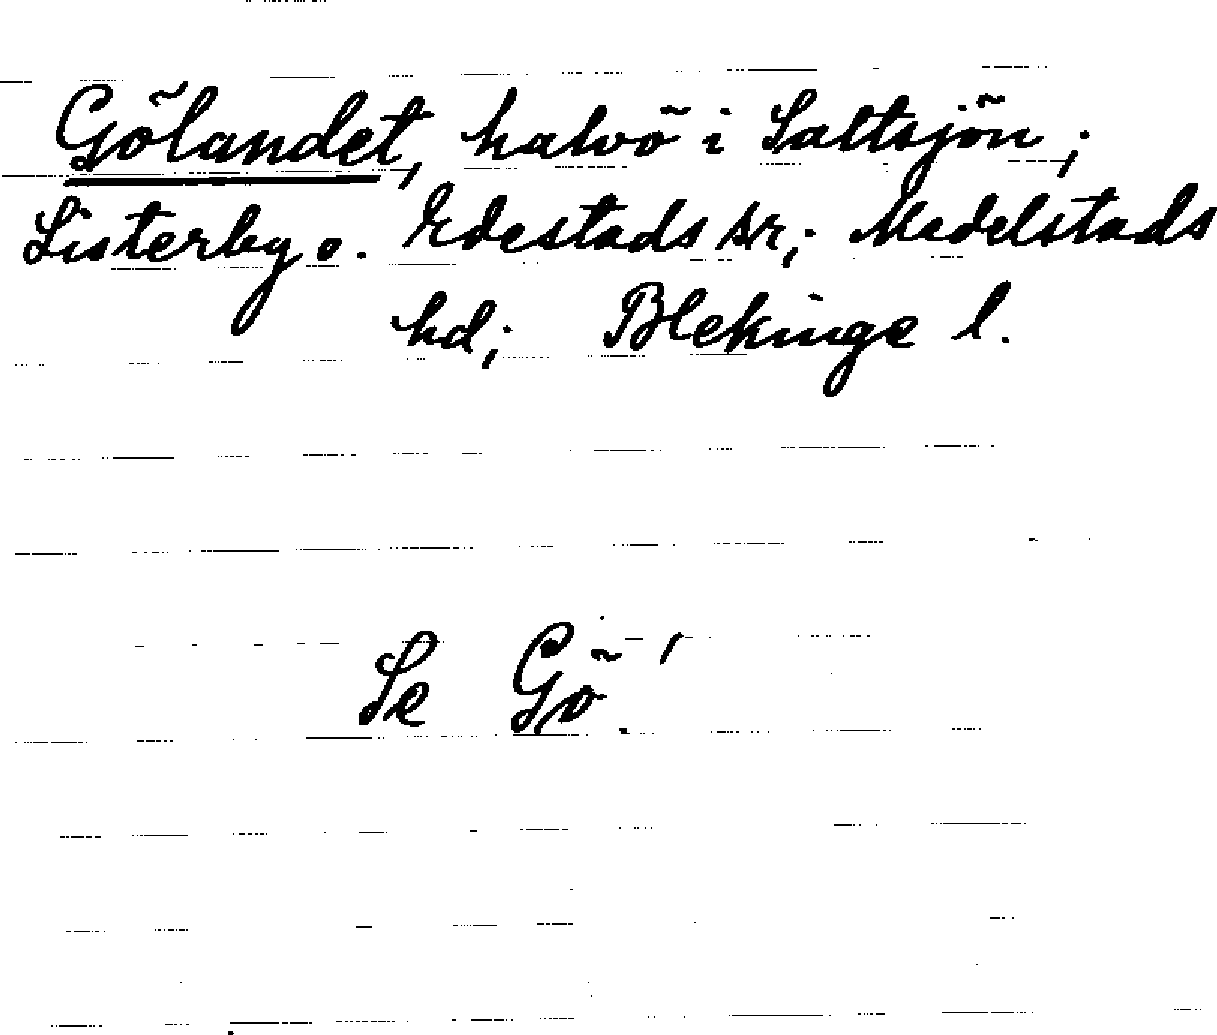 Gölandet, halvö i Saltsjön;
Listerby o. Edestads snr; Medelstads
hd; Blekinge l.
Se Gö.